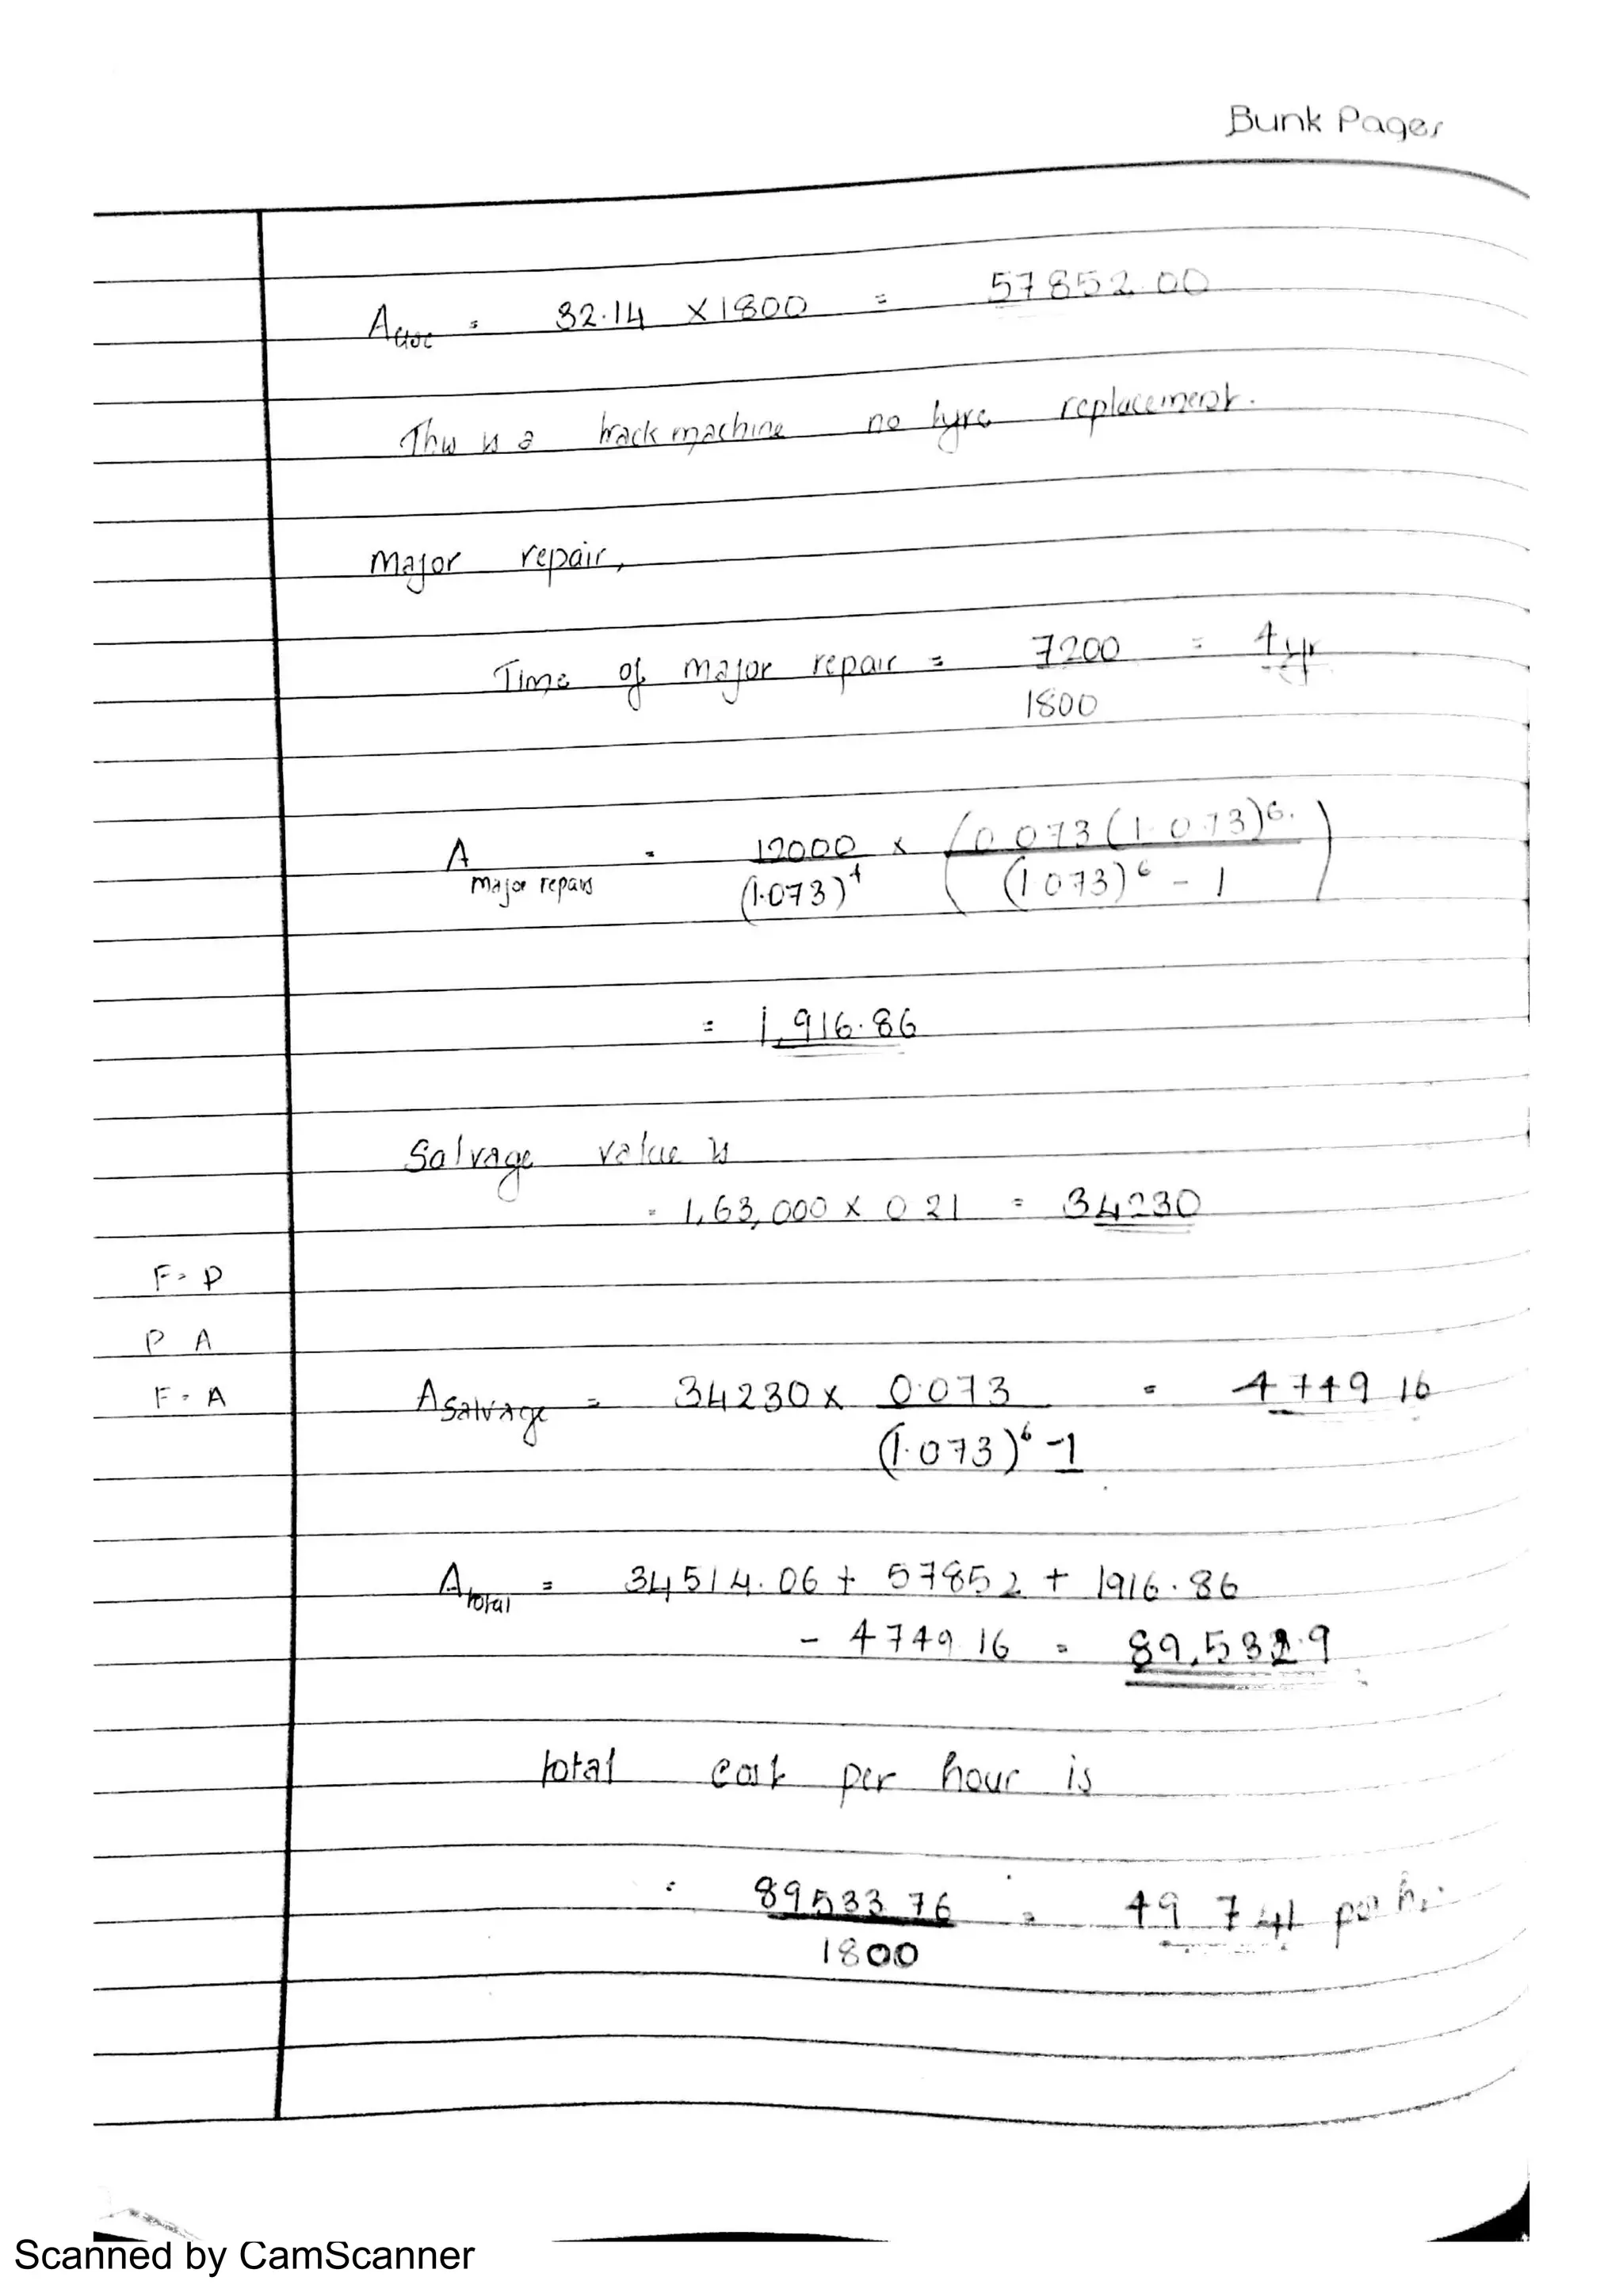 Bunk Pages
A = 32.14 X 1800 = 57852.00
This is a track machine no tyre replacement.
Major repair,
Time of major repair = 7200 = 4 yr
1800
A major repairs = 12000 x (0.073(1.073)^6
(1.073)^4 (1.073)^6 - 1)
= 1,916.86
Salvage value is
= 1,63,000 x 0.21 = 34230
F = P
P A
F = A
A Salvage = 34230 x 0.073 = 4749.16
(1.073)^6 - 1
A total = 34,514.06 + 57852 + 1916.86
- 4749.16 = 89,532.9
total cost per hour is
= 89533.76 = 49.741 per hr.
1800
Scanned by CamScanner